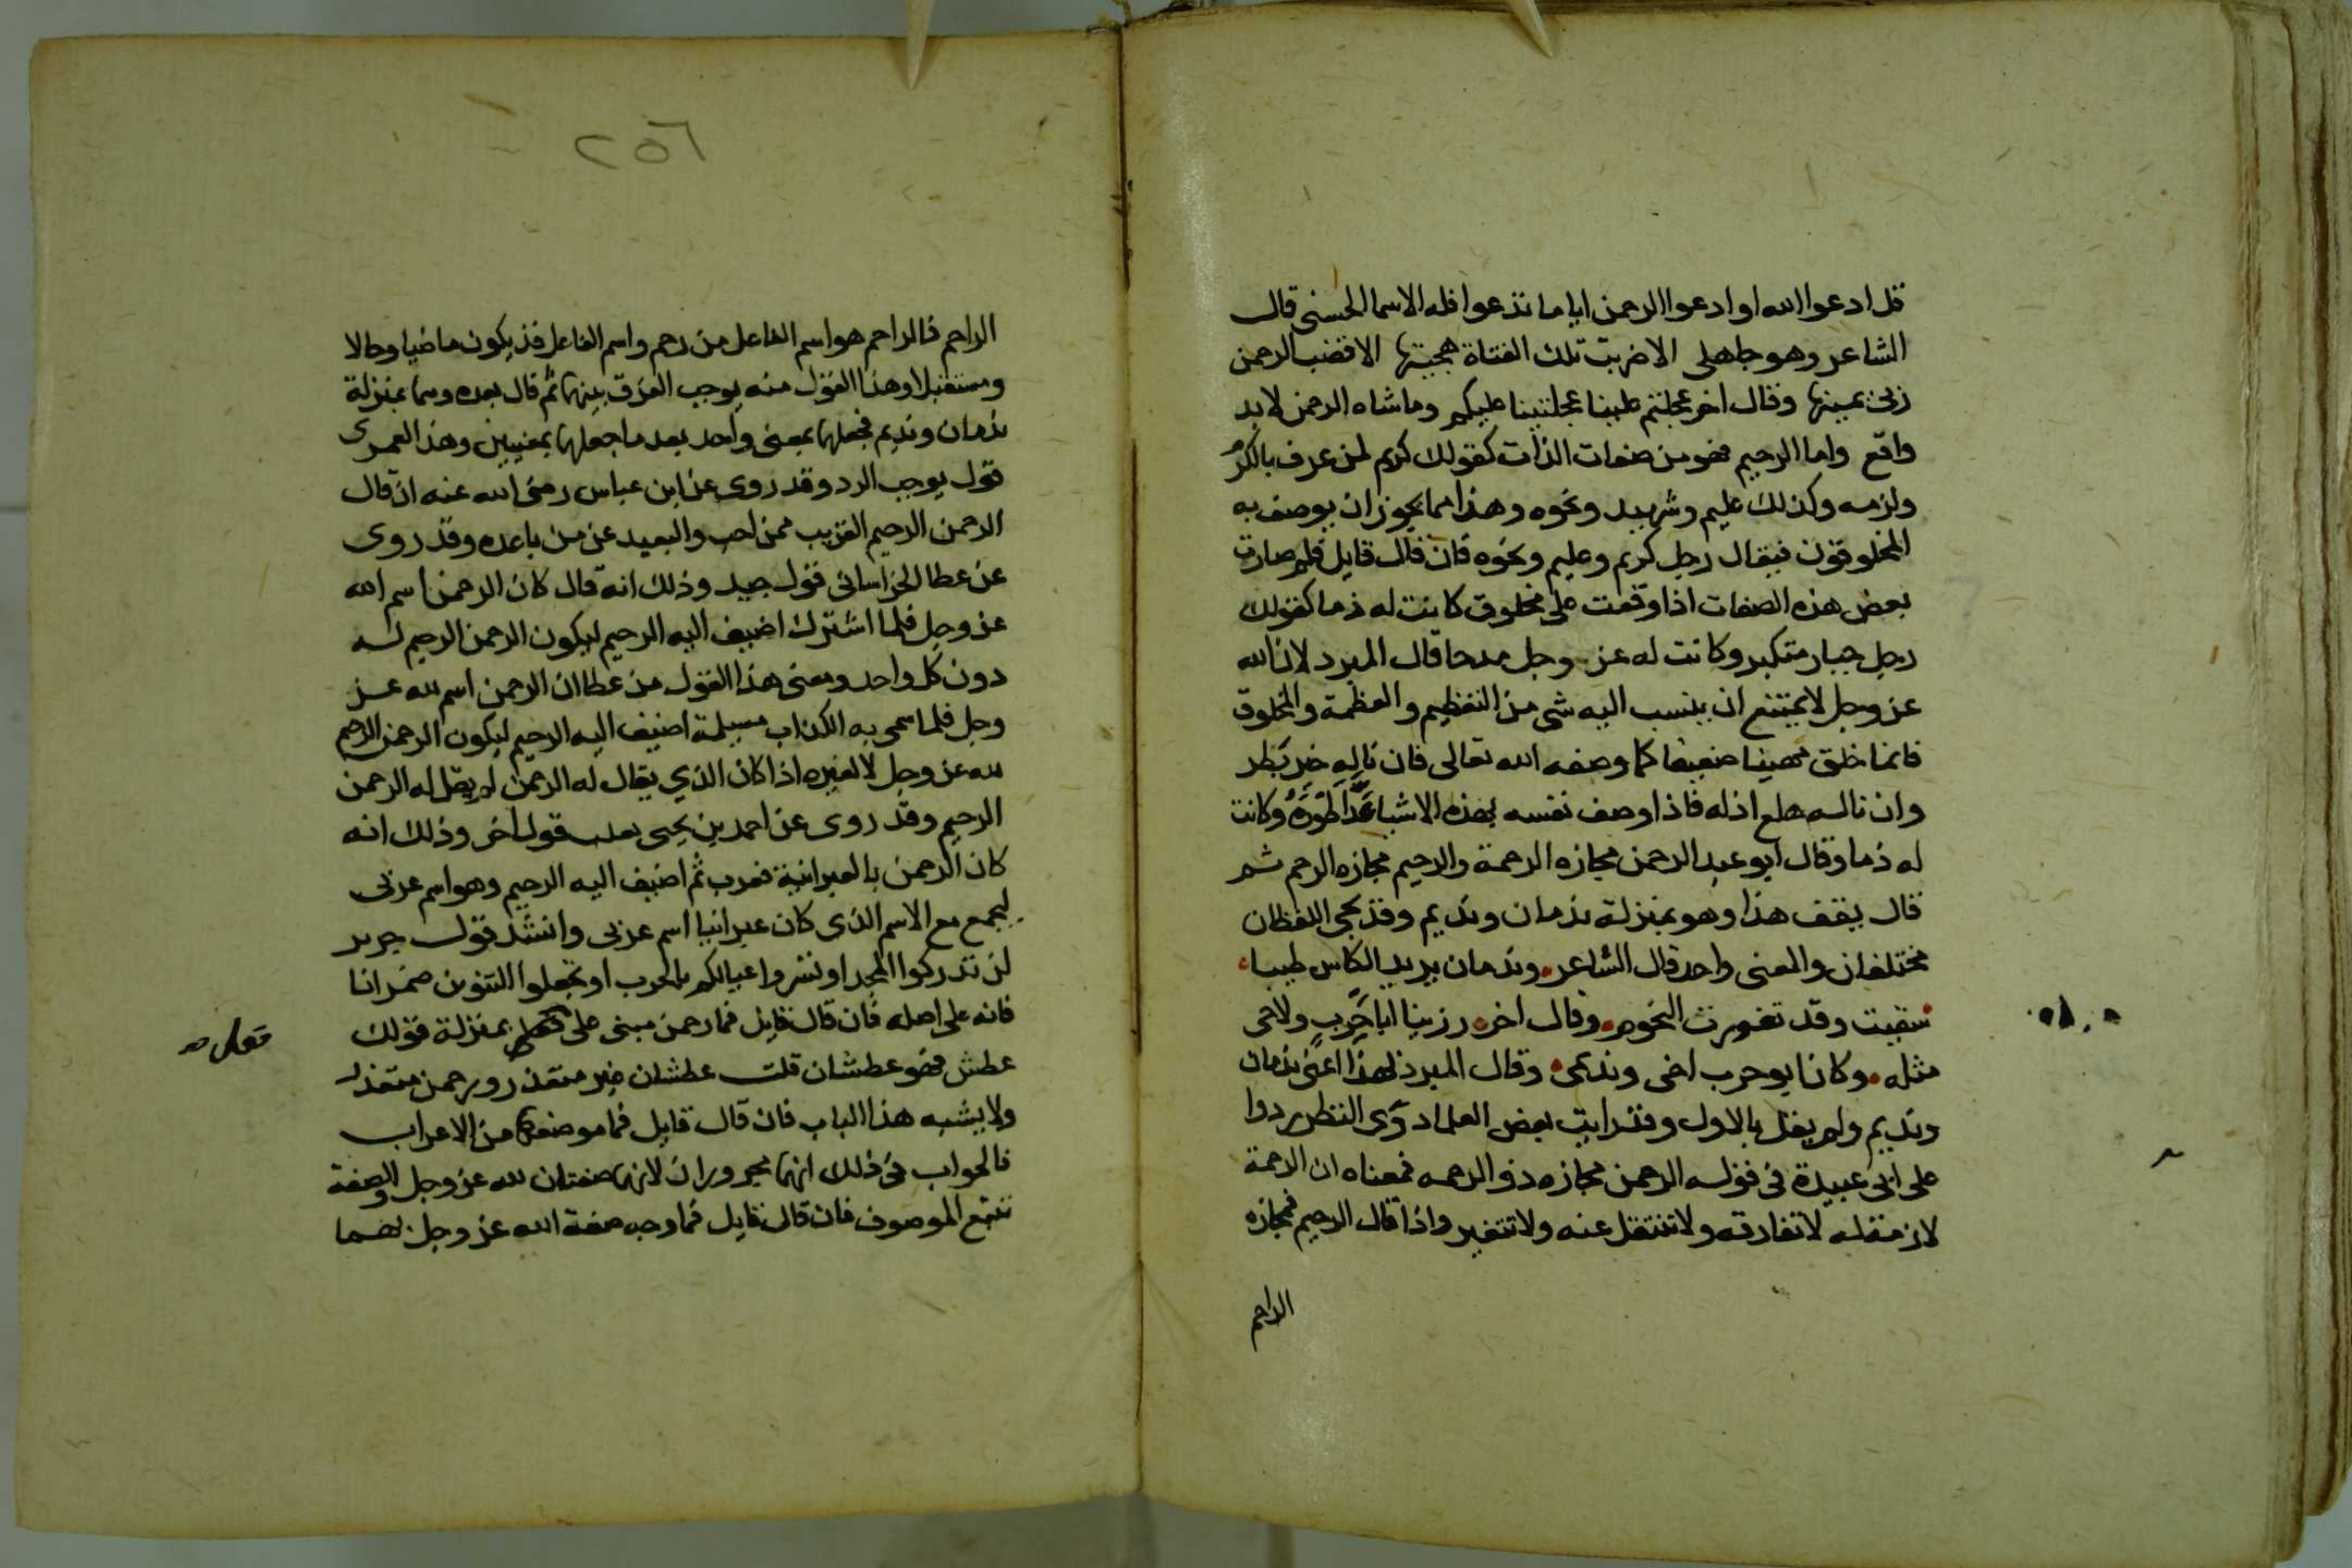 قل ادعوا الله او ادعوا الرحمن اياما تدعوا فله الاسما الحسنى قال
الشاعر وهو جاهلى الا ضربت تلك الفتاة هجينها الا قضب الرحمن
ربى يمينها وقال اخر عجلتم علينا عجلتينا عليكم وما شاه الرحمن لا بد
واقع واما الرحيم فهو من صفات الذات كقولك كريم لمن عرف بالكرم
ولزمه وكذلك عليم وشهيد ونحوه وهذا مما يجوز ان يوصف به
المخلوقون فيقال رجل كريم وعليم ونحوه فان قال قايل فلم صارت
بعض هذه الصفات اذا وقعت على مخلوق كانت له ذما كقولك
رجل جبار متكبر وكانت له عز وجل مدحا قال المبرد لان الله
عز وجل لا يمتنع ان ينسب اليه شى من التعظيم والعظمة والمخلوق
فانما خلق مهينا ضعيفا كما وصفه الله تعالى فان ناله خير بطر
وان ناله هلع اذله فاذا وصف نفسه بهذه الاشيا عدا طوره وكانت
له ذما وقال ابو عبد الرحمن مجازه الرحمة والرحيم مجازه الرحم ثم
قال يقف هذا وهو بمنزلة ندمان ونديم وقد يجى اللفظان
مختلفان والمعنى واحد قال الشاعر وندمان يزيد الكاس طيبا
سقيت وقد تغورت النجوم وقال اخر رزينا ابا حرب ولا حى
مثله وكان ابو حرب اخى ونديمى وقال المبرد لهذا اعنى ندمان
ونديم ولم يقل بالاول وقد رايت بعض العلما ذوى النظر ردوا
على ابى عبيدة فى قوله الرحمن مجازه ذو الرحمه فمعناه ان الرحمة
لازمة له لا تفارقه ولا تنتقل عنه ولا تتغير واذا قال الرحيم فمجازه
الراحم
٢٥٦
الراحم فالراحم هو اسم الفاعل من رحم واسم الفاعل قد يكون ماضيا وحالا
ومستقبلا وهذا القول منه يوجب الفرق بينهما ثم قال بعده وهما بمنزلة
ندمان ونديم فجعلهما بمعنى واحد بعد ما جعلهما بمعنيين وهذا لعمرى
قول يوجب الرد وقد روى عن ابن عباس رضى الله عنه ان قال
الرحمن الرحيم القريب ممن احب والبعيد عن من باعده وقد روى
عن عطا الخراسانى قول جيد وذلك انه قال كان الرحمن اسم الله
عز وجل فلما اشترك اضيف اليه الرحيم ليكون الرحمن الرحيم له
دون كل واحد ومعنى هذا القول من عطا ان الرحمن اسم لله عز
وجل فلما سمى به الكذاب مسيلمة اضيف اليه الرحيم ليكون الرحمن الرحيم
لله عز وجل لا لغيره اذا كان الذي يقال له الرحمن لم يقل له الرحمن
الرحيم وقد روى عن احمد بن يحيى ثعلب قول اخر وذلك انه
كان الرحمن بالعبرانية فعرب ثم اضيف اليه الرحيم وهو اسم عربى
ليجمع مع الاسم الذى كان عبرانيا اسم عربى وانشد قول جرير
لن تدركوا المجد او تشروا عبالكم بالحرب او تجعلوا التنوين ضمرانا
فانه على اصله فان قال قايل فما رحمن مبنى على بمنزلة قولك
فعل صه
عطش فهو عطشان قلت عطشان غير متعد ورحمن متعد
ولا يشبه هذا الباب فان قال قايل فما موضعهما من الاعراب
فالجواب فى ذلك انهما مجروران لانهما صفتان لله عز وجل والصفة
تتبع الموصوف فان قال قايل فما وجه صفة الله عز وجل بهما